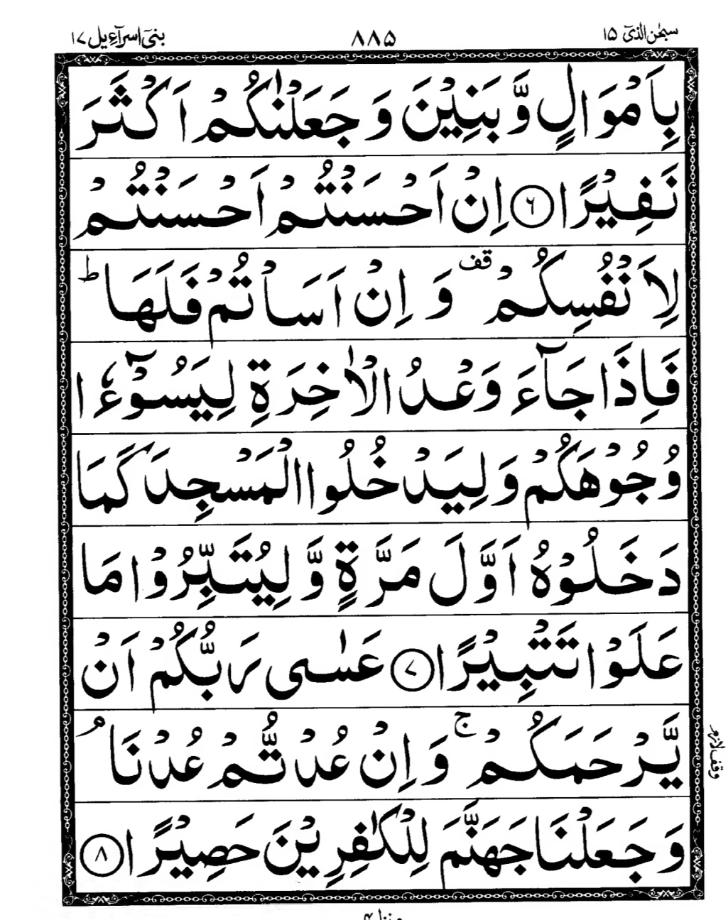 سبحٰن الذیٓ ١٥ ٨٨٥ بنیٓ اسرآءیل ١٧
بِاَمْوَالٍ وَّبَنِيْنَ وَ جَعَلْنٰكُمْ اَكْثَرَ
نَفِيْرًا ﴿٦﴾ اِنْ اَحْسَنْتُمْ اَحْسَنْتُمْ
لِاَنْفُسِكُمْ ۫قف وَ اِنْ اَسَاْتُمْ فَلَهَا ؕ
فَاِذَا جَآءَ وَعْدُ الْاٰخِرَةِ لِيَسُوْٓءٗا
وُجُوْهَكُمْ وَلِيَدْخُلُوا الْمَسْجِدَ كَمَا
دَخَلُوْهُ اَوَّلَ مَرَّةٍ وَّ لِيُتَبِّرُوْا مَا
عَلَوْا تَتْبِيْرًا ﴿٧﴾ عَسٰى رَبُّكُمْ اَنْ
يَّرْحَمَكُمْ ۚ وَ اِنْ عُدْتُّمْ عُدْنَا ۘ
وقف لازم
وَ جَعَلْنَا جَهَنَّمَ لِلْكٰفِرِيْنَ حَصِيْرًا ﴿٨﴾